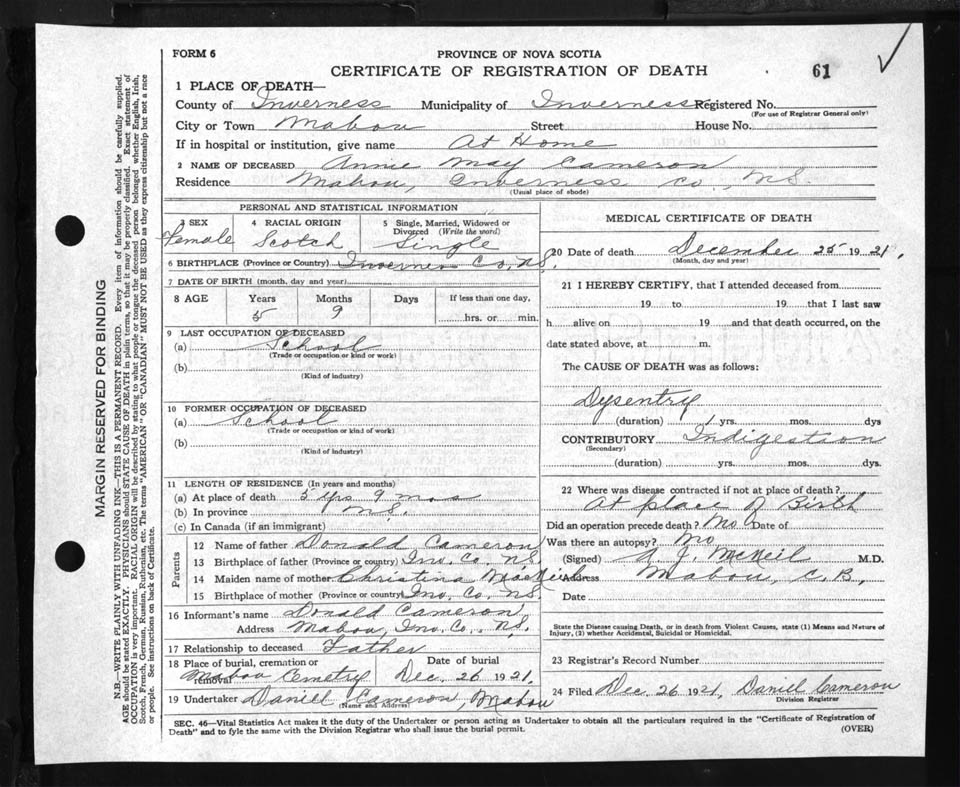 FORM 6
PROVINCE OF NOVA SCOTIA
CERTIFICATE OF REGISTRATION OF DEATH
61
1 PLACE OF DEATH—
County of Inverness Municipality of Inverness Registered No.
(For use of Registrar General only)
City or Town Mabou Street House No.
If in hospital or institution, give name At Home
2 NAME OF DECEASED Annie May Cameron
Residence Mabou, Inverness Co., N.S.
(Usual place of abode)
PERSONAL AND STATISTICAL INFORMATION
3 SEX 4 RACIAL ORIGIN 5 Single, Married, Widowed or Divorced (Write the word)
Female Scotch Single
6 BIRTHPLACE (Province or Country) Inverness Co., N.S.
7 DATE OF BIRTH (month, day and year)
8 AGE Years Months Days If less than one day,
5 9 hrs. or min.
9 LAST OCCUPATION OF DECEASED
(a) School
(Trade or occupation or kind or work)
(b)
(Kind of industry)
10 FORMER OCCUPATION OF DECEASED
(a) School
(Trade or occupation or kind of work)
(b)
(Kind of industry)
11 LENGTH OF RESIDENCE (In years and months)
(a) At place of death 5 yrs 9 mos
(b) In province N.S.
(c) In Canada (if an immigrant)
Parents
12 Name of father Donald Cameron
13 Birthplace of father (Province or country) Inv. Co. N.S.
14 Maiden name of mother Christina MacNeil
15 Birthplace of mother (Province or country) Inv. Co. N.S.
16 Informant's name Donald Cameron
Address Mabou, Inv. Co., N.S.
17 Relationship to deceased Father
18 Place of burial, cremation or removal Date of burial
Mabou Cemetry Dec. 26 1921.
19 Undertaker Daniel Cameron, Mabou
(Name and Address)
MEDICAL CERTIFICATE OF DEATH
20 Date of death December 25 1921.
(Month, day and year)
21 I HEREBY CERTIFY, that I attended deceased from
19 to 19 that I last saw
h alive on 19 and that death occurred, on the
date stated above, at m.
The CAUSE OF DEATH was as follows:
Dysentry
(duration) 1 yrs. mos. dys
CONTRIBUTORY Indigestion
(Secondary)
(duration) yrs. mos. dys.
22 Where was disease contracted if not at place of death?
At place of Birth
Did an operation precede death? No Date of
Was there an autopsy? No
(Signed) A J. McNeil M.D.
Address Mabou, C.B.,
Date
State the Disease causing Death, or in death from Violent Causes, state (1) Means and Nature of
Injury, (2) whether Accidental, Suicidal or Homicidal.
23 Registrar's Record Number
24 Filed Dec. 26 1921, Daniel Cameron
Division Registrar
SEC. 46—Vital Statistics Act makes it the duty of the Undertaker or person acting as Undertaker to obtain all the particulars required in the "Certificate of Registration of
Death" and to fyle the same with the Division Registrar who shall issue the burial permit. (OVER)
MARGIN RESERVED FOR BINDING
N.B.—WRITE PLAINLY WITH UNFADING INK—THIS IS A PERMANENT RECORD. Every item of information should be carefully supplied.
AGE should be stated EXACTLY. PHYSICIANS should STATE CAUSE OF DEATH in plain terms, so that it may be properly classified. Exact statement of
OCCUPATION is very important. RACIAL ORIGIN will be described by stating to what people or tongue the deceased person belonged whether English, Irish,
Scotch, French, German, Russian, Ruthenian, etc. The terms "AMERICAN" OR "CANADIAN" MUST NOT BE USED as they express citizenship but not a race
or people. See instructions on back of Certificate.